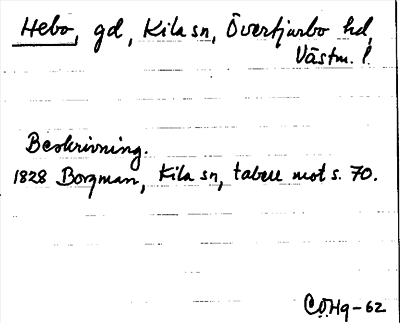 Hebo, gd, Kila sn, Övertjurbo hd,
Västm. l.
Beskrivning.
1828 Borgman, Kila sn, tabell mot s. 70.
COHq-62